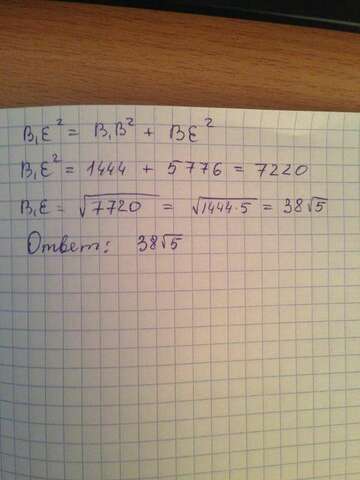 B₁E² = B₁B² + BE²
B₁E² = 1444 + 5776 = 7220
B₁E = √7720 = √1444·5 = 38√5
Ответ: 38√5